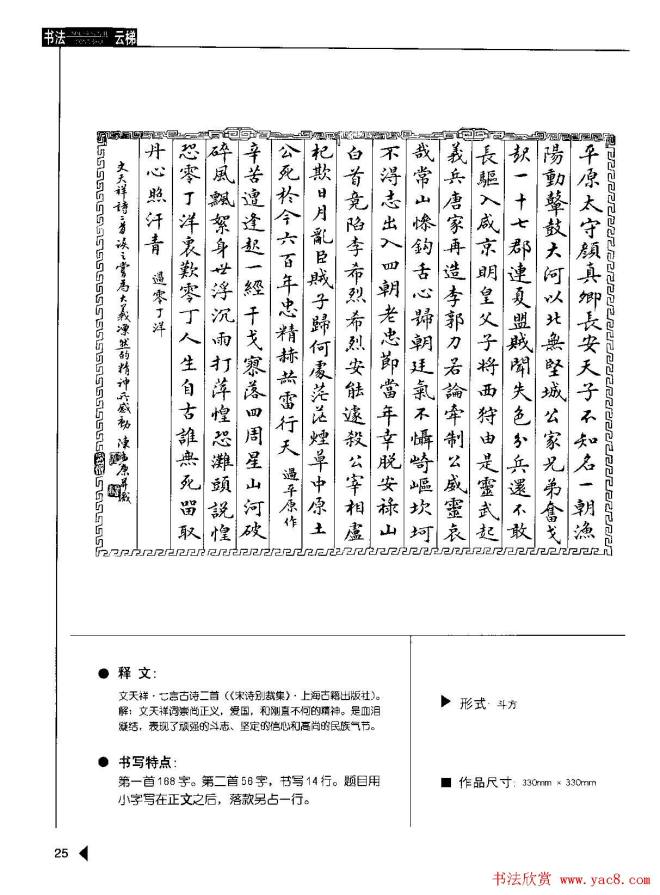 书法 云梯
平原太守顏真卿長安天子不知名一朝漁
陽動鼙鼓大河以北無堅城公家兄弟奮戈
起一十七郡連夏盟賊聞失色分兵還不敢
長驅入咸京明皇父子將西狩由是靈武起
義兵唐家再造李郭力若論牽制公威靈哀
哉常山慘鈎舌心歸朝廷氣不懾崎嶇坎坷
不得志出入四朝老忠節當年幸脫安祿山
白首竟陷李希烈希烈安能遽殺公宰相盧
杞欺日月亂臣賊子歸何處茫茫煙草中原土
公死於今六百年忠精赫赫雷行天 過平原作
辛苦遭逢起一經干戈寥落四周星山河破
碎風飄絮身世浮沉雨打萍惶恐灘頭說惶
恐零丁洋裏歎零丁人生自古誰無死留取
丹心照汗青 過零丁洋
文天祥詩二首讀之嘗爲大義凜然的精神所感動 陳 原并識
● 释文：
文天祥·七言古诗二首（《宋诗别裁集》·上海古籍出版社）。
解：文天祥词崇尚正义，爱国，和刚直不何的精神。是血泪
凝结，表现了顽强的斗志、坚定的信心和高尚的民族气节。
● 书写特点：
第一首168字。第二首56字，书写14行。题目用
小字写在正文之后，落款另占一行。
▶ 形式· 斗方
■ 作品尺寸：330mm × 330mm
25
书法欣赏 www.yac8.com